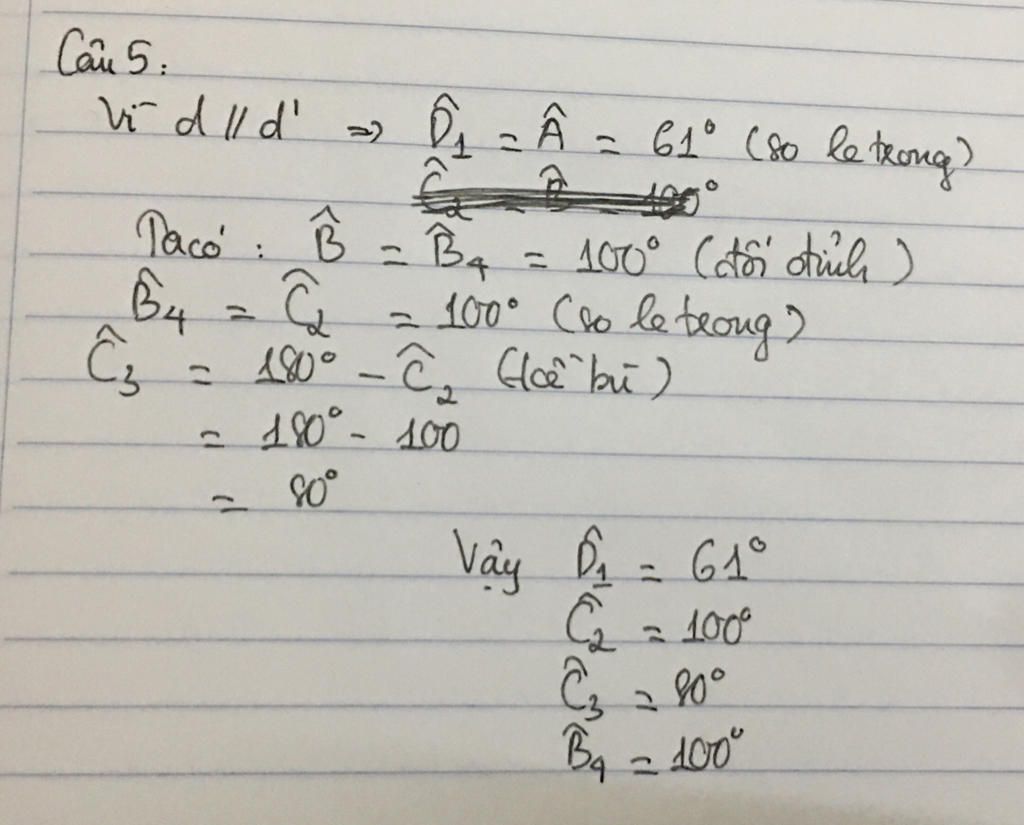 Câu 5:
Vì d // d' => D̂₁ = Â = 61° (so le trong)
Ĉ₂ = B̂ = 100°
Ta có: B̂ = B̂₄ = 100° (đối đỉnh)
B̂₄ = Ĉ₂ = 100° (so le trong)
Ĉ₃ = 180° - Ĉ₂ (kề bù)
= 180° - 100
= 80°
Vậy D̂₁ = 61°
Ĉ₂ = 100°
Ĉ₃ = 80°
B̂₄ = 100°